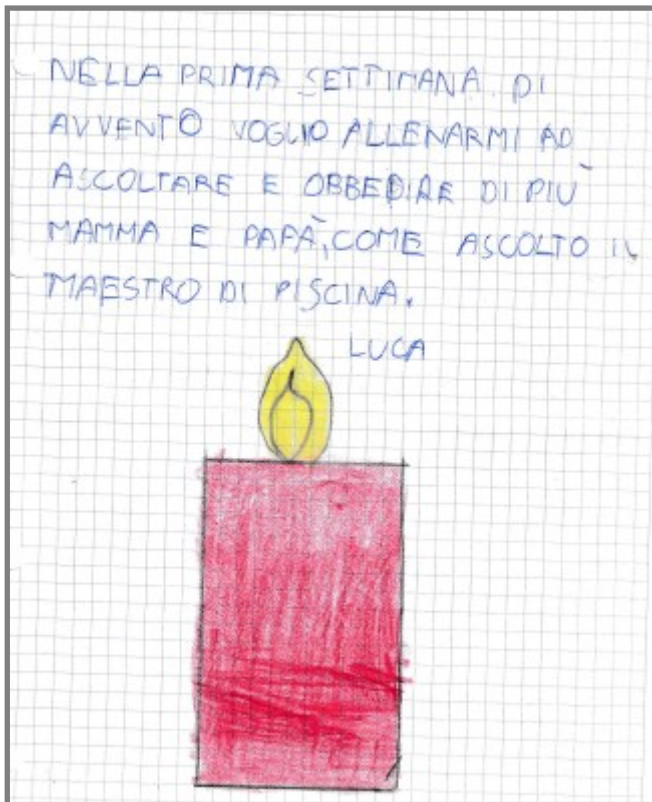 NELLA PRIMA SETTIMANA DI
AVVENTO VOGLIO ALLENARMI AD
ASCOLTARE E OBBEDIRE DI PIÙ
MAMMA E PAPÀ, COME ASCOLTO IL
MAESTRO DI PISCINA.
LUCA